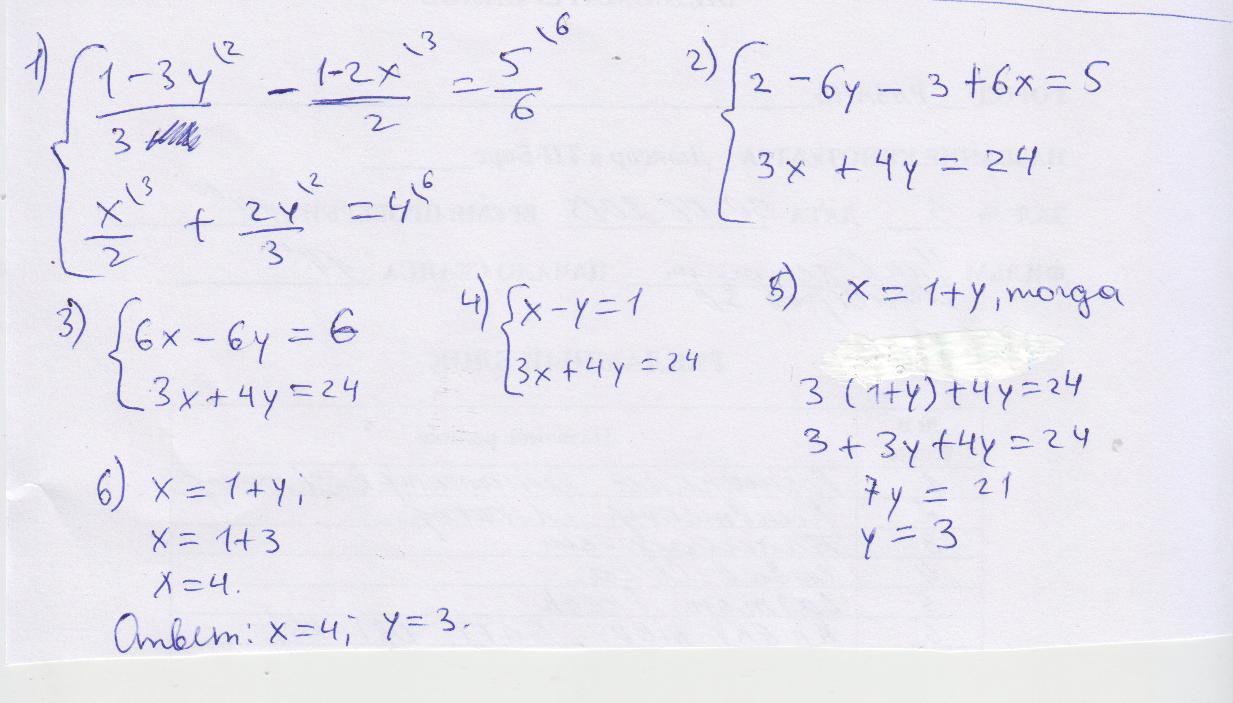 1) { (1-3y)/3 \2 - (1-2x)/2 \3 = 5/6 \6
x/2 \3 + 2y/3 \2 = 4\6
2) { 2 - 6y - 3 + 6x = 5
3x + 4y = 24
3) { 6x - 6y = 6
3x + 4y = 24
4) { x - y = 1
3x + 4y = 24
5) x = 1+y, тогда
3(1+y)+4y=24
3+3y+4y=24
7y = 21
y = 3
6) x = 1+y;
x = 1+3
x=4.
Ответ: x=4; y=3.